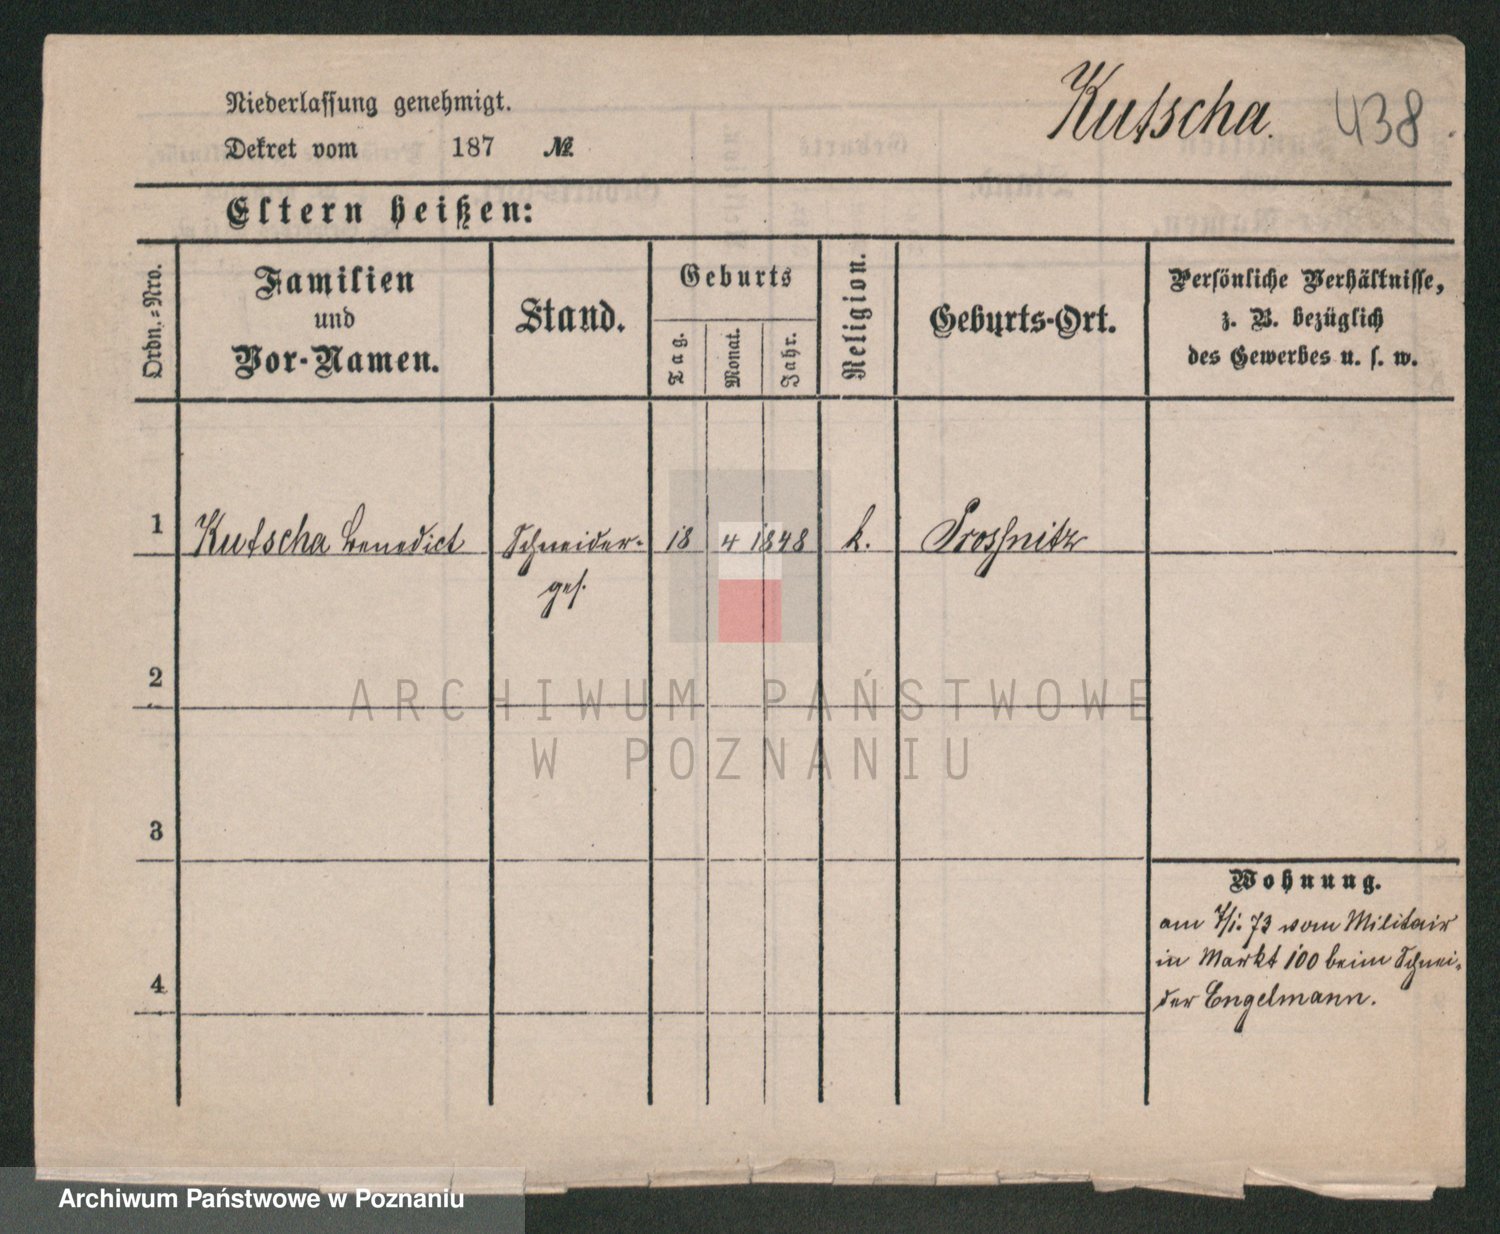 Kutscha. 438.
Niederlassung genehmigt.
Dekret vom 187 №
Eltern heißen:
Ordn.-Nro.
Familien
und
Vor-Namen.
Stand.
Geburts
Tag.
Monat.
Jahr.
Religion.
Geburts-Ort.
Persönliche Verhältnisse,
z. B. bezüglich
des Gewerbes u. s. w.
1 Kutscha Benedict Schneider- 18 4 1848 k. Prossnitz
ges.
2
ARCHIWUM PAŃSTWOWE
W POZNANIU
3
Wohnung.
am 7/1. 73 vom Militair
in Markt 100 beim Schnei-
der Engelmann.
4
Archiwum Państwowe w Poznaniu